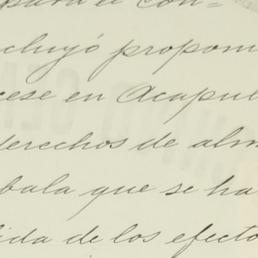 para el con-
cluyó propon
cese en Acapul
derechos de alm
bala que se ha
ida de los efecto